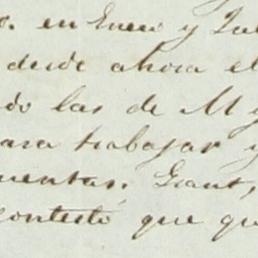 o. en Enero y Jul
desde ahora el
do las de M y
para trabajar y
mentas. Gant,
contestó que qu